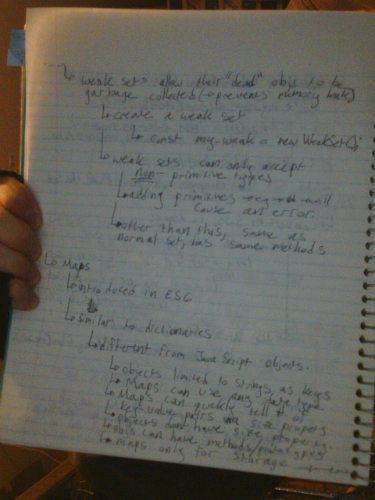 weak sets allow their "dead" objs to be
garbage collected (→ prevents memory leaks)
create a weak set
const my-weak = new WeakSet();
weak sets can only accept
non-primitive types
adding primitives will
cause an error.
other than this, same as
normal set, has same methods
Maps
introduced in ES6
similar to dictionaries
different from JavaScript objects.
objects limited to strings as keys
Maps can use any data type
Maps can quickly tell # of
key-value pairs via size property
objects don't have size property
objs can have methods/prototypes
maps only for storage